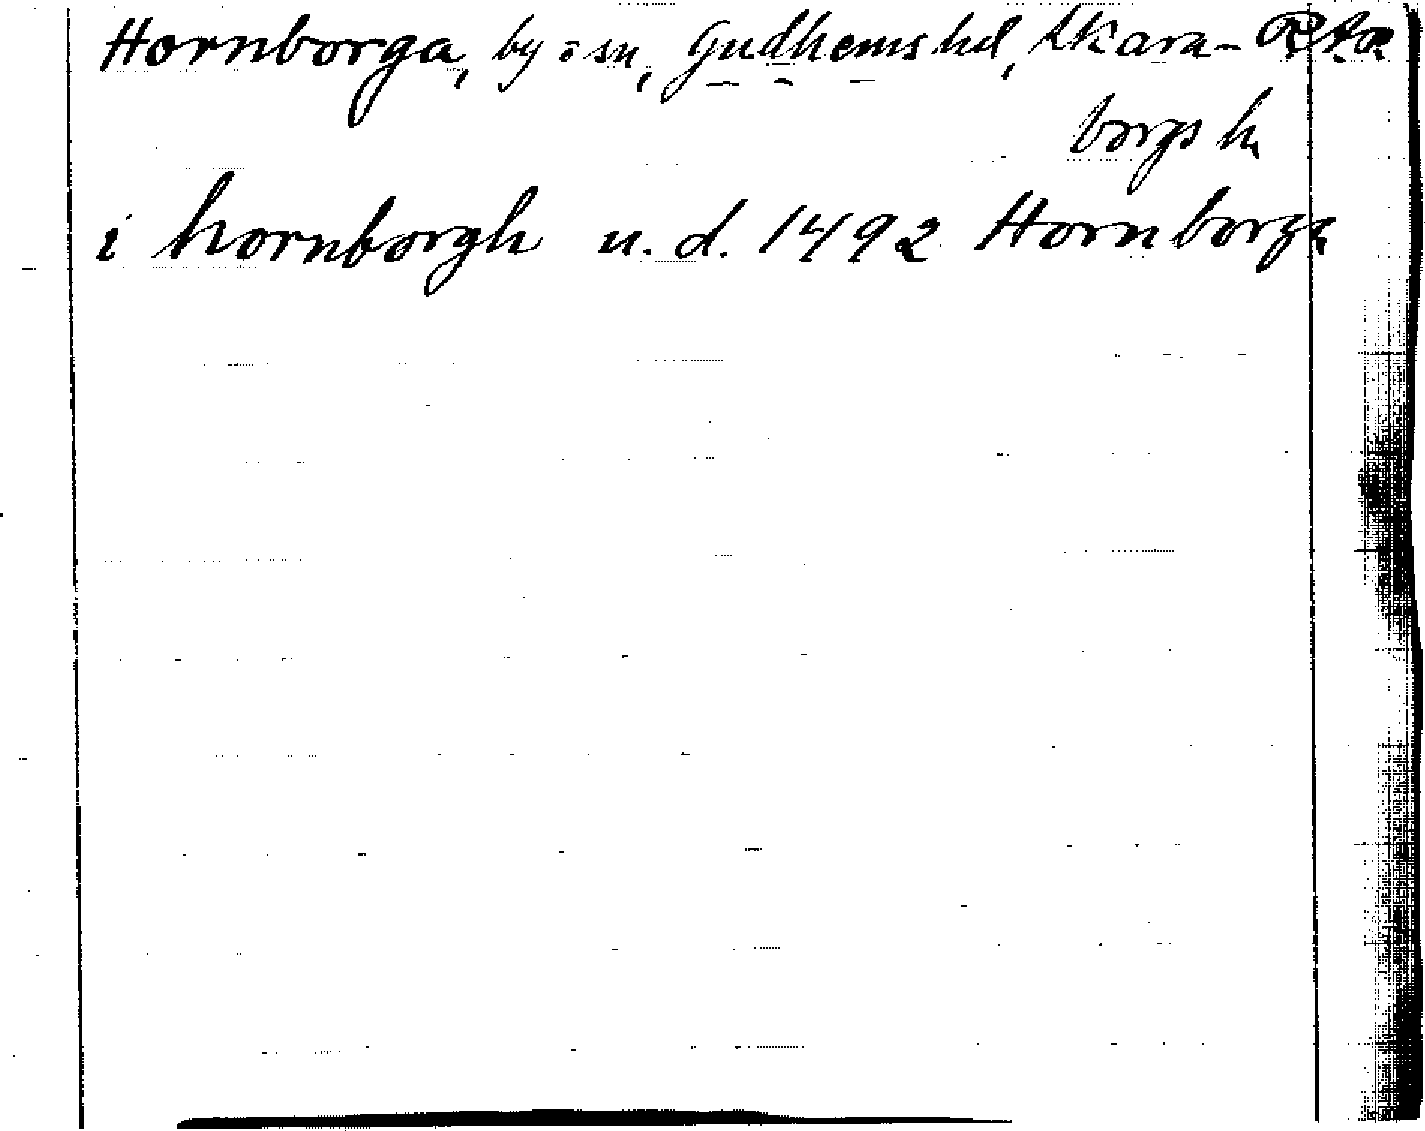 Hornborga, by o sn, Gudhems hd, Skara-
borgs l.
i hornborgh u. d. 1492 Hornborga